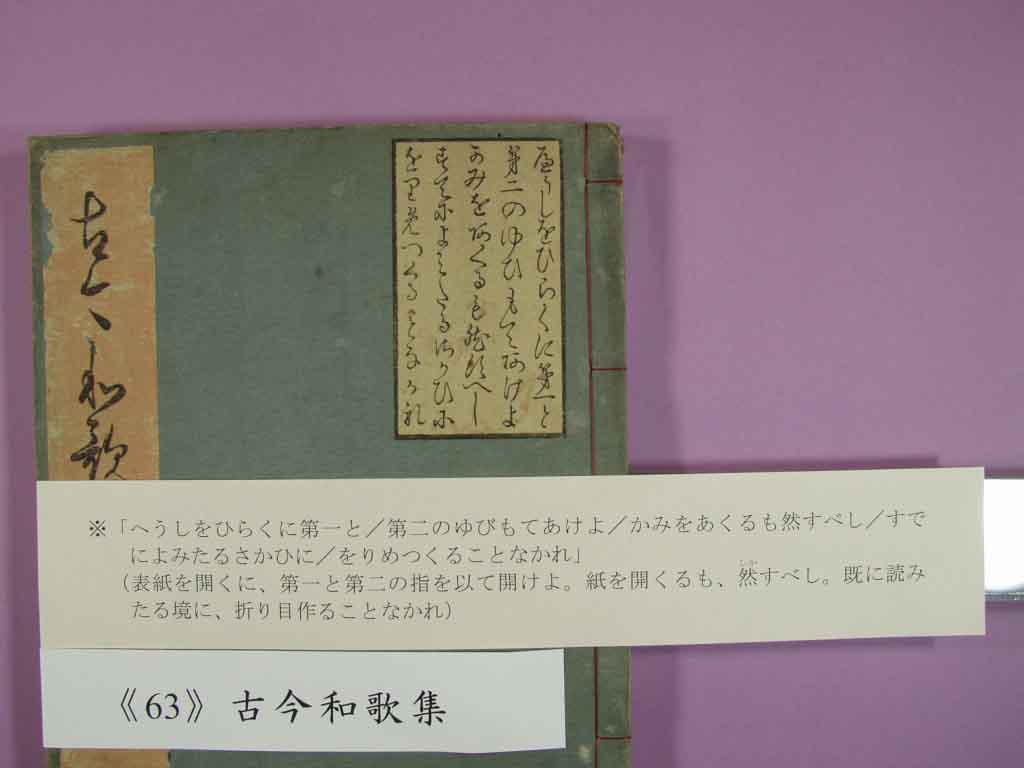 古今和歌
へうしをひらくに第一と
第二のゆひもてあけよ
かみをあくるも然すへし
すてによみたるさかひに
をりめつくることなかれ
※「へうしをひらくに第一と／第二のゆびもてあけよ／かみをあくるも然すべし／すで
によみたるさかひに／をりめつくることなかれ」
（表紙を開くに、第一と第二の指を以て開けよ。紙を開くるも、然すべし。既に読み
しか
たる境に、折り目作ることなかれ）
《63》 古今和歌集